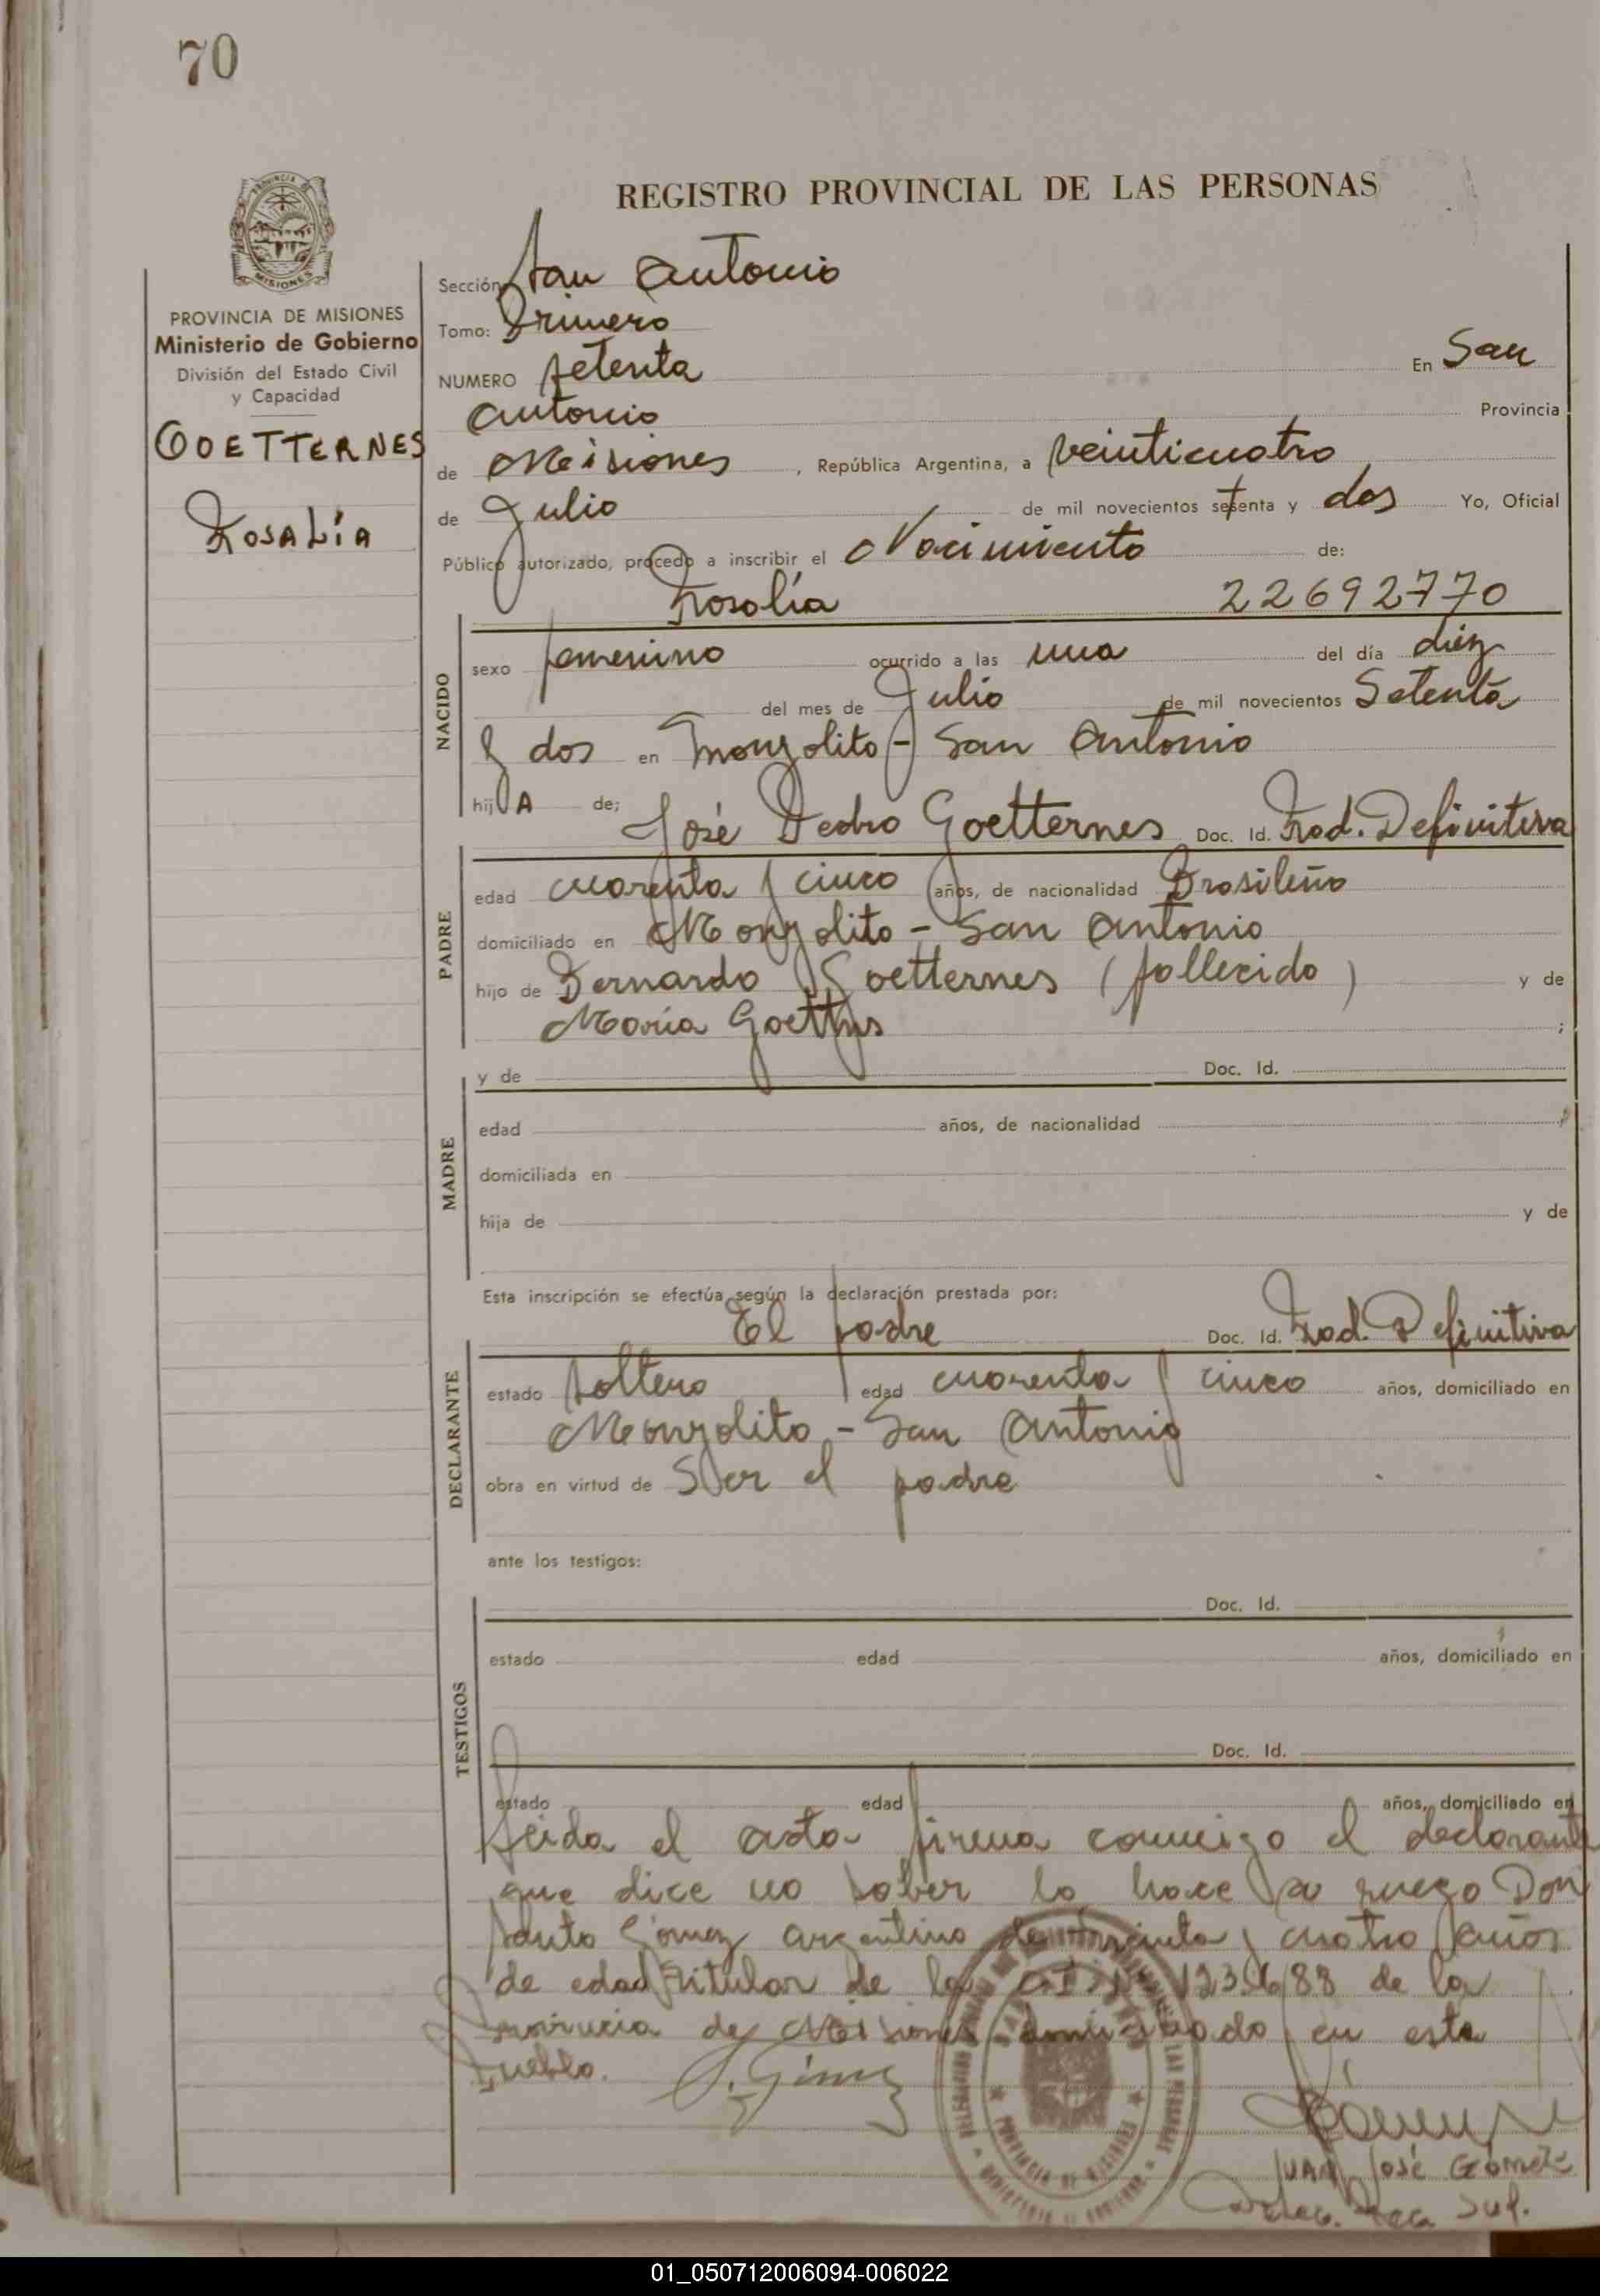 70
REGISTRO PROVINCIAL DE LAS PERSONAS
PROVINCIA DE MISIONES
Ministerio de Gobierno
División del Estado Civil
y Capacidad
GOETTERNES
Rosalía
Sección San Antonio
Tomo: Primero
NUMERO setenta En San
Antonio Provincia
de Misiones, República Argentina, a veinticuatro
de Julio de mil novecientos setenta y dos Yo, Oficial
Público autorizado, procedo a inscribir el Nacimiento de:
Rosalía 22692770
NACIDO
sexo femenino ocurrido a las una del día diez
del mes de Julio de mil novecientos Setenta
y dos en Monzolito - San Antonio
hijA de; José Pedro Goetternes Doc. Id. Rad. Definitiva
PADRE
edad cuarenta y cinco años, de nacionalidad Brasileño
domiciliado en Monzolito - San Antonio
hijo de Bernardo Goetternes (fallecido) y de
María ;
MADRE
y de Doc. Id.
edad años, de nacionalidad
domiciliada en
hija de y de
Esta inscripción se efectúa según la declaración prestada por:
El padre Doc. Id. Rad. Definitiva
DECLARANTE
estado soltero edad cuarenta y cinco años, domiciliado en
Monzolito - San Antonio
obra en virtud de Ser el padre
ante los testigos:
TESTIGOS
Doc. Id.
estado edad años, domiciliado en
Doc. Id.
estado edad años, domiciliado en
Leida el acta firma conmigo el declarante
que dice no saber lo hace a ruego Don
Santo Gómez argentino de treinta y cuatro años
de edad titular de la de la
Provincia de Misiones domiciliado en esta
Pueblo. S. Gómez
JUAN José Gómez
PROVINCIA DE MISIONES
01_050712006094-006022